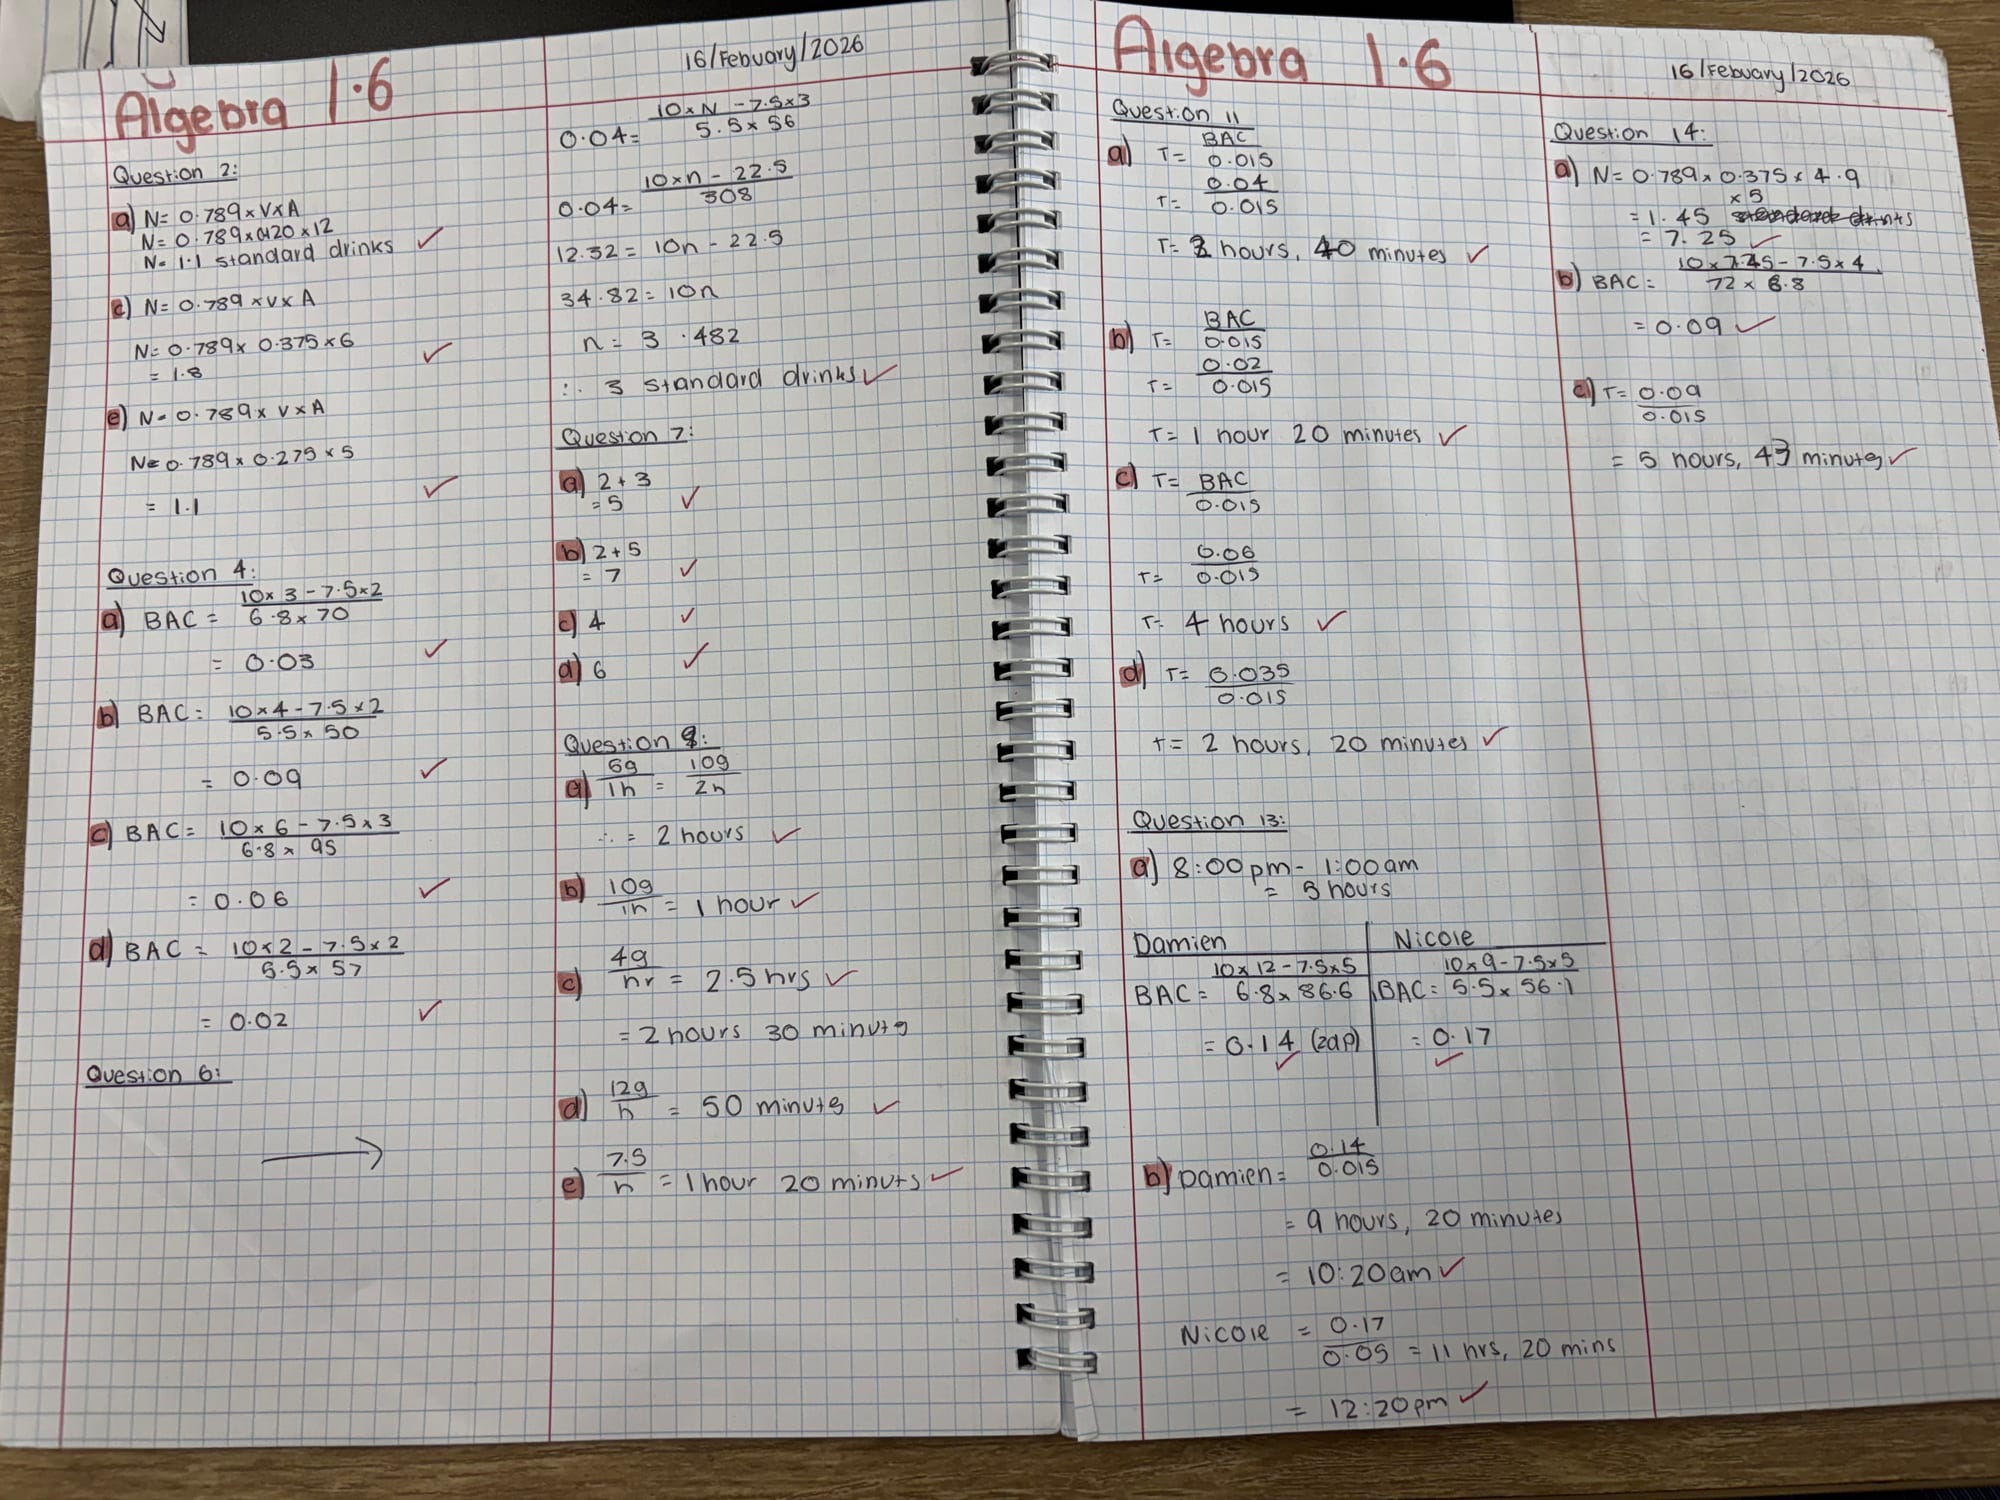 Algebra 1.6
16/Febuary/2026
Question 2:
a) N= 0.789×V×A
N= 0.789×0.120×12
N= 1.1 standard drinks ✓
c) N= 0.789×V×A
N= 0.789× 0.375×6
= 1.8 ✓
e) N= 0.789× V×A
N= 0.789×0.275×5
= 1.1 ✓
Question 4:
a) BAC = 10×3-7.5×2 / 6.8×70
= 0.03 ✓
b) BAC = 10×4-7.5×2 / 5.5×50
= 0.09 ✓
c) BAC = 10×6-7.5×3 / 6.8×95
= 0.06 ✓
d) BAC = 10×2-7.5×2 / 5.5×57
= 0.02 ✓
Question 6:
→
0.04= 10×N-7.5×3 / 5.5×56
0.04= 10×n-22.5 / 308
12.32 = 10n-22.5
34.82 = 10n
n = 3.482
∴ 3 standard drinks ✓
Question 7:
a) 2+3
= 5 ✓
b) 2+5
= 7 ✓
c) 4 ✓
d) 6 ✓
Question 9:
a) 5g / 1h = 10g / 2h
∴ = 2 hours ✓
b) 10g / 1h = 1 hour ✓
c) 4g / hr = 2.5 hrs ✓
= 2 hours 30 minute
d) 12g / h = 50 minutes ✓
e) 7.5 / h = 1 hour 20 minuts ✓
Algebra 1.6
16/Febuary/2026
Question 11
a) T= BAC / 0.015
T= 0.04 / 0.015
T= 2 hours, 40 minutes ✓
b) T= BAC / 0.015
T= 0.02 / 0.015
T= 1 hour 20 minutes ✓
c) T= BAC / 0.015
T= 0.06 / 0.015
T= 4 hours ✓
d) T= 0.035 / 0.015
T= 2 hours, 20 minutes ✓
Question 13:
a) 8:00pm - 1:00am
= 5 hours
Damien
BAC = 10×12-7.5×5 / 6.8×86.6
= 0.14 (2dp) ✓
Nicole
BAC = 10×9-7.5×5 / 5.5×56.1
= 0.17 ✓
b) Damien = 0.14 / 0.015
= 9 hours, 20 minutes
= 10:20am ✓
Nicole = 0.17 / 0.05 = 11 hrs, 20 mins
= 12:20pm ✓
Question 14:
a) N= 0.789×0.375×4.9
×5
= 1.45 standard drinks
= 7.25 ✓
b) BAC = 10×7.25-7.5×4 / 72×6.8
= 0.09 ✓
c) T= 0.09 / 0.015
= 5 hours, 43 minutes ✓